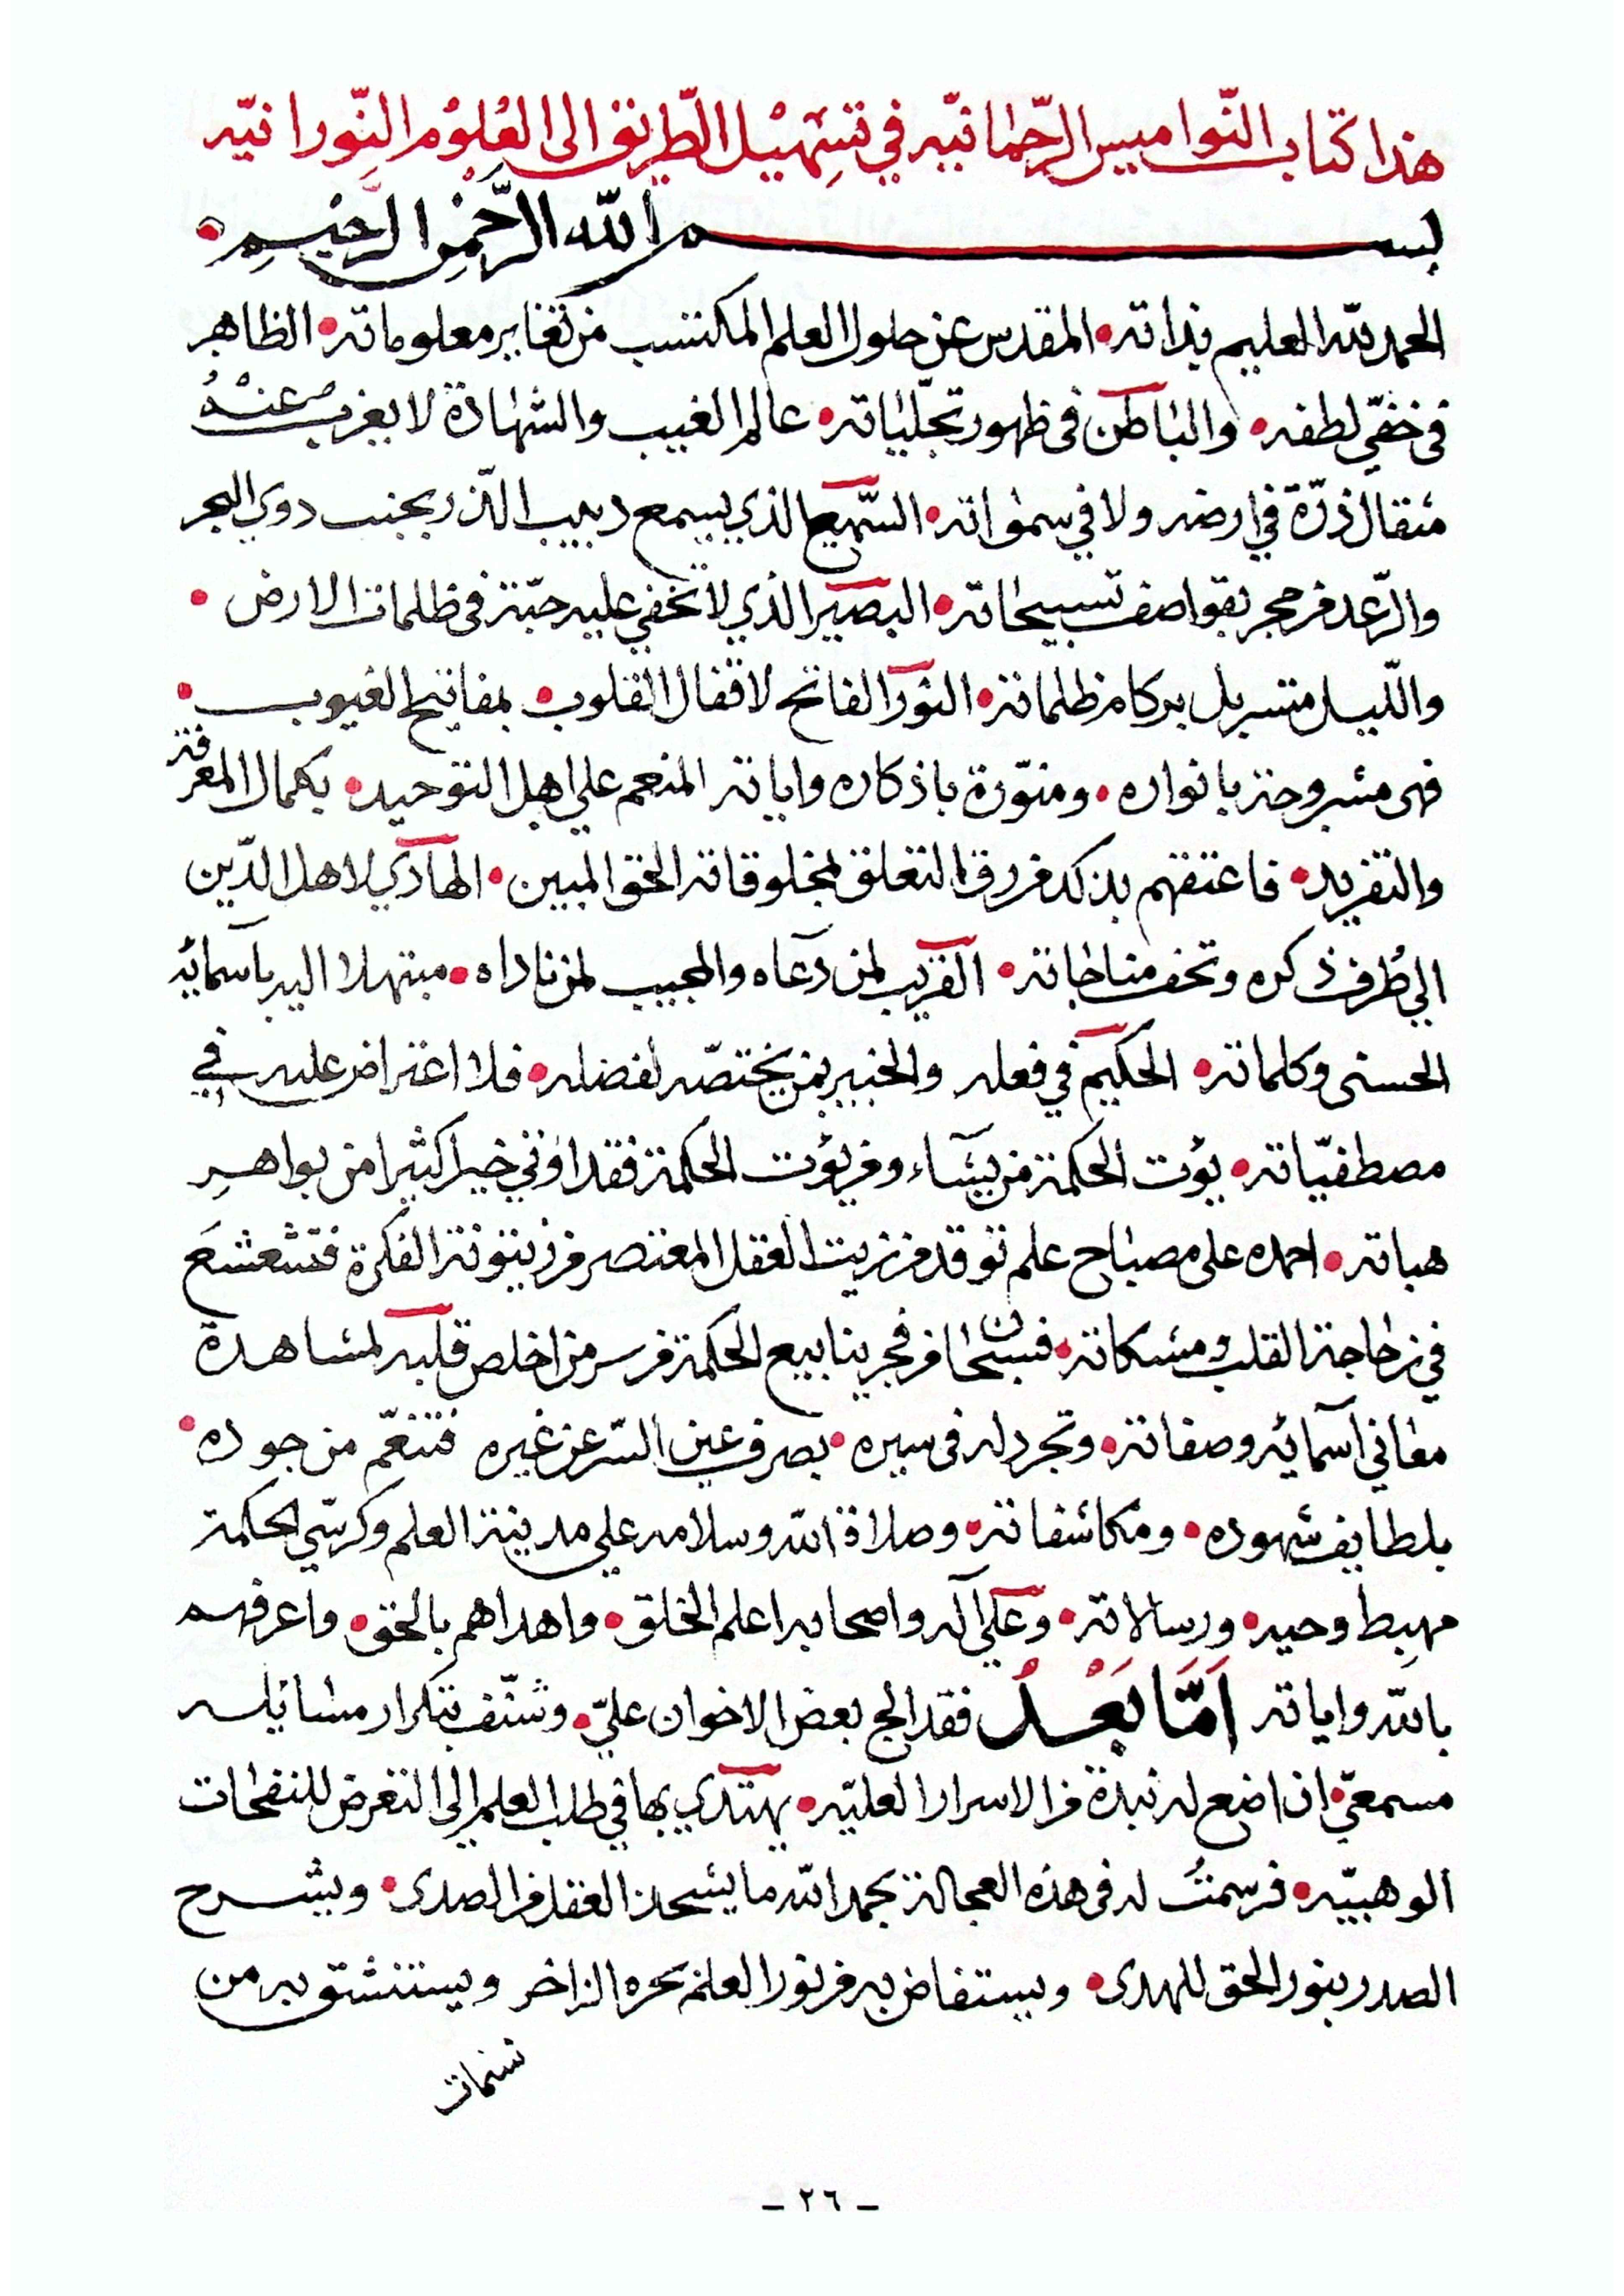 هذا كتاب النّواميس الرّحمانيّه في تسهيل الطّريق الى العُلوُم النّورانيّه
بسم الله الرَّحْمٰنِ الرَّحِيْمِ
الحمد لله العليم بذاته • المقدس عن حلول العلم المكتسب من تغاير معلوماته • الظاهر
فى خفيّ لطفه • والباطن فى ظهور تجلّياته • عالم الغيب والشهادة لا يعزب عنهُ
مثقال ذرّة في ارضه ولا في سمواته • السّميع الذي يسمع دبيب الذّر بجنب دوي البحر
والرّعد مزمجر بقواصف تسبيحاته • البصير الذي لا تخفي عليه حبّة فى ظلمات الارض •
والليل متسربل بركام ظلماته • النّور الفاتح لاقفال القلوب • بمفاتيح الغيوب •
فهى مشروحة بانواره • ومنوّرة باذكاره واياته المنعم علي اهل التوحيد • بكمال المعرفة
والتفريد • فاعتقهم بذلك من رق التعلق بمخلوقاته الحق المبين • الهادي لاهل الدّين
الي طُرف ذكره وتحف مناجاته • القريب لمن دعاه والمجيب لمن ناداه • مبتهلا اليه باسمائه
الحسنى وكلماته • الحكيم في فعله والخبير بمن يختصّه لفضله • فلا اعتراض عليه في
مصطفيّاته • يؤت الحكمة من يشاء ومن يؤت الحكمة فقد اوتي خيرا كثيرا من بواهرِ
هباته • احمده على مصباح علم توقد من زيت العقل المعتصر من زيتونة الفكرة فتشعشعَ
في زجاجة القلب ومشكاته • فسبحان من فجر ينابيع الحكمة من سر من اخلص قلبه لمشاهدة
معاني اسمائه وصفاته • وتجرد له فى سيره • بصرف عين السّر عن غيره فتنعّم من جوده •
بلطايف شهوده • ومكاشفاته • وصلاة الله وسلامه علي مدينة العلم وكرسّي الحكمة
مهبط وحيه • ورسالاته • وعلي آله واصحابه اعلم الخلق • واهداهم بالحق • واعرفهم
بالله واياته اَمَّا بَعْدُ فقد الح بعض الاخوان عليّ • وشنّف بتكرار مسائله
مسمعيّ • ان اضع له نبذة من الاسرار العليّه • يهتدي بها في طلب العلم الى التعرض للنفحات
الوهبيّه • فرسمتُ له فى هذه العجالة بحمد الله ما يشحذ العقل من الصدى • ويشرح
الصدر بنور الحق للهدى • ويستفاض به من نور العلم بحره الزاخر ويستنشق به من
نسمات
- ٢٦ -